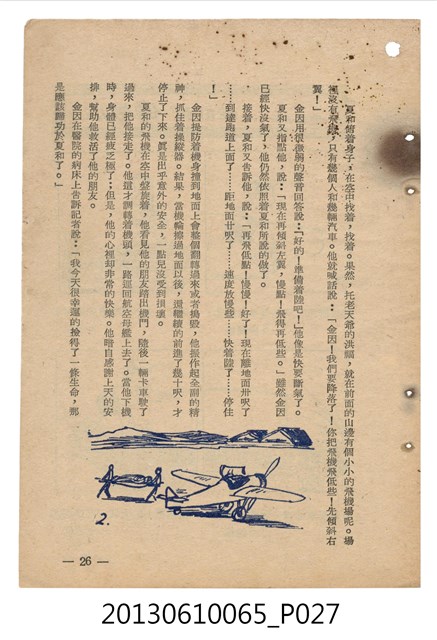 夏和俯着身子，在空中找着，找着。果然，托老天爺的洪福，就在前面的山邊有個小小的飛機場呢。場
裡沒有飛機，只有幾個人和幾輛汽車。他就喊話說：「金因！我們要降落了！你把飛機飛低些！先傾斜右
翼！」
金因用很微弱的聲音回答說：「好的！準備着陸吧！」他像是快要斷氣了。
夏和又指點他，說：「現在再傾斜左翼，慢點！飛得再低些。」雖然金因
已經快沒氣了，他仍然依照着夏和所說的做了。
接着，夏和又告訴他，說：「再飛低點！慢慢！好了！現在離地面卅呎了
……到達跑道上面了……距地面廿呎了……速度放慢些……快着陸了……停住
金因提防着機身撞到地面上會整個翻轉過來或者搗毀，他振作起全副的精
神，抓住着操縱器。結果，當機輪擦過地面以後，還繼續的前進了幾十呎，才
停止了下來。眞是出乎意外的安全，一點兒沒受到損壞。
夏和的飛機在空中盤旋着，他看見他的朋友踏出機門，隨後一輛卡車駛了
過來，把他接走了。他這才調轉着機頭，一路返回航空母艦上去了。當他下機
時，身體已經疲乏極了：但是，他的心裡却非常的快樂。他暗自感謝上天的安
排，幫助他救活了他的朋友。
金因在醫院的病床上告訴記者說：「我今天很幸運的撿得了一條生命，那
是應該歸功於夏和了。」
2.
— 26 —
20130610065_P027